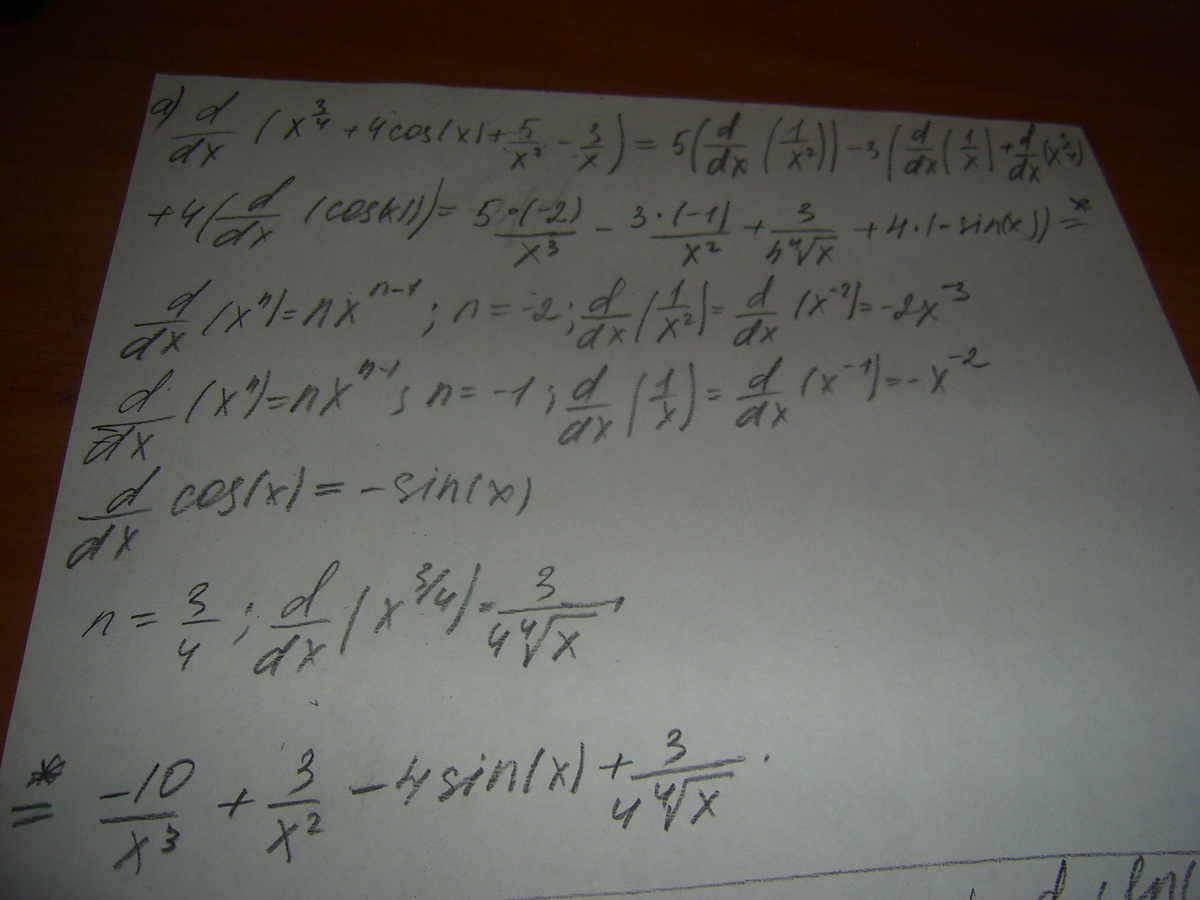 a) d/dx (x^{3/4} + 4cos(x) + 5/x^2 - 3/x) = 5(d/dx (1/x^2)) - 3(d/dx (1/x) + d/dx (x^{3/4})
+ 4(d/dx (cos(x))) = 5·(-2)/x^3 - 3·(-1)/x^2 + 3/(4∜x) + 4·(-sin(x)) =*
d/dx (x^n) = nx^{n-1}; n = -2; d/dx (1/x^2) = d/dx (x^{-2}) = -2x^{-3}
d/dx (x^n) = nx^{n-1}; n = -1; d/dx (1/x) = d/dx (x^{-1}) = -x^{-2}
d/dx cos(x) = -sin(x)
n = 3/4; d/dx (x^{3/4}) = 3/(4∜x)
=* -10/x^3 + 3/x^2 - 4sin(x) + 3/(4∜x).